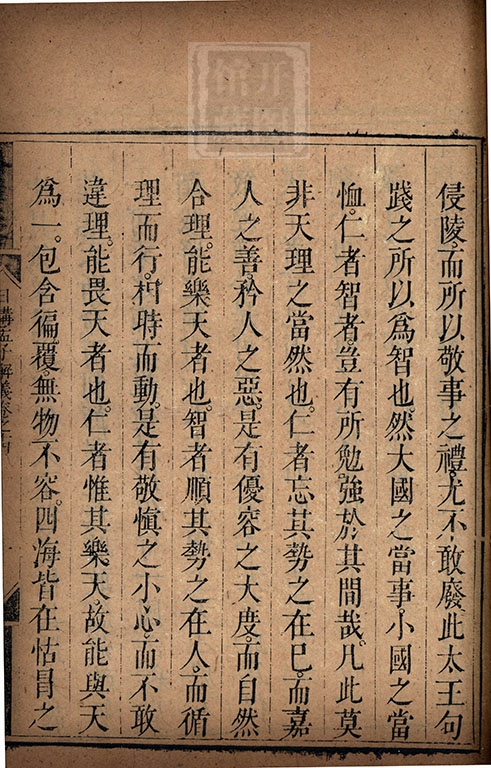 侵陵。而所以敬事之禮。尤不敢廢。此太王句
踐之所以爲智也。然大國之當事。小國之當
恤。仁者智者豈有所勉強於其間哉。凡此莫
非天理之當然也。仁者忘其勢之在已。而嘉
人之善。矜人之惡。是有優容之大度。而自然
合理。能樂天者也。智者順其勢之在人。而循
理而行。相時而動。是有敬愼之小心。而不敢
違理。能畏天者也。仁者惟其樂天。故能與天
爲一。包含徧覆。無物不容。四海皆在怙冒之
日講孟子解義卷之十四